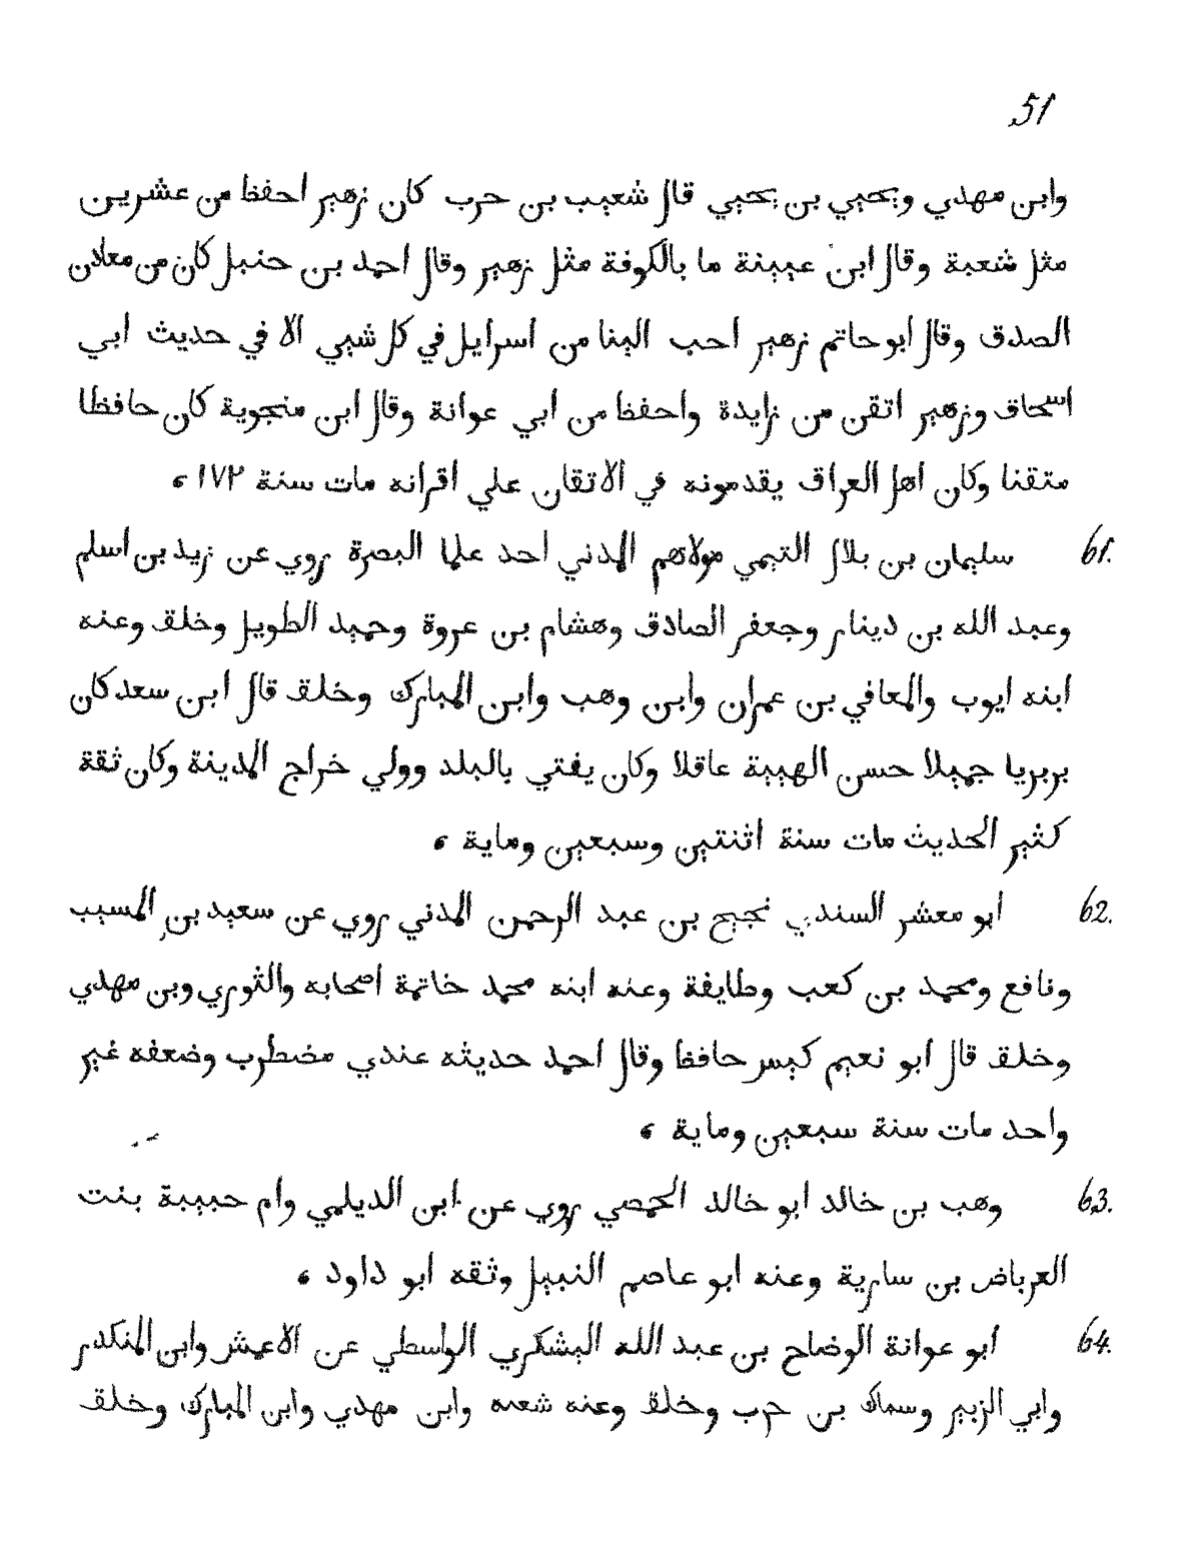 51
وابن مهدي ويحيي بن يحيي قال شعيب بن حرب كان زهير احفظ من عشرين
مثل شعبة وقال ابن عيينة ما بالكوفة مثل زهير وقال احمد بن حنبل كان من معادن
الصدق وقال ابو حاتم زهير احب الينا من اسرايل في كل شيي الا في حديث ابي
اسحاق وزهير اتقن من زايدة واحفظ من ابي عوانة وقال ابن منجوية كان حافظا
متقنا وكان اهل العراق يقدمونه في الاتقان علي اقرانه مات سنة ١٧٢ ،
61. سليمان بن بلال التيمي مولاهم المدني احد علما البصرة روي عن زيد بن اسلم
وعبد الله بن دينار وجعفر الصادق وهشام بن عروة وحميد الطويل وخلق وعنه
ابنه ايوب والمعافي بن عمران وابن وهب وابن المبارك وخلق قال ابن سعد كان
بربريا جميلا حسن الهيبة عاقلا وكان يفتي بالبلد وولي خراج المدينة وكان ثقة
كثير الحديث مات سنة اثنتين وسبعين وماية ،
62. ابو معشر السندي نجيح بن عبد الرحمن المدني روي عن سعيد بن المسيب
ونافع ومحمد بن كعب وطايفة وعنه ابنه محمد خاتمة اصحابه والثوري وبن مهدي
وخلق قال ابو نعيم كيس حافظ وقال احمد حديثه عندي مضطرب وضعفه غير
واحد مات سنة سبعين وماية ،
63. وهب بن خالد ابو خالد الحمصي روي عن ابن الديلمي وام حبيبة بنت
العرباض بن سارية وعنه ابو عاصم النبيل وثقه ابو داود ،
64. ابو عوانة الوضاح بن عبد الله اليشكري الواسطي عن الاعمش وابن المنكدر
وابي الزبير وسماك بن حرب وخلق وعنه شعبه وابن مهدي وابن المبارك وخلق